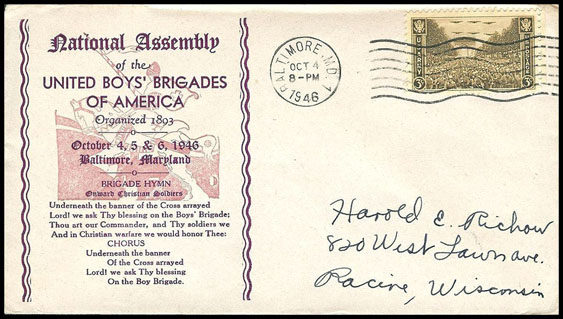 National Assembly
of the
UNITED BOYS' BRIGADES
OF AMERICA
Organized 1893
October 4, 5 & 6, 1946
Baltimore, Maryland
BRIGADE HYMN
Onward Christian Soldiers
Underneath the banner of the Cross arrayed
Lord! we ask Thy blessing on the Boys' Brigade;
Thou art our Commander, and Thy soldiers we
And in Christian warfare we would honor Thee:
CHORUS
Underneath the banner
Of the Cross arrayed
Lord! we ask Thy blessing
On the Boy Brigade.
BALTIMORE, MD. 1
OCT 4
8-PM
1946
3¢ 3¢
Harold E. Richow
820 West Lawn ave.
Racine, Wisconsin